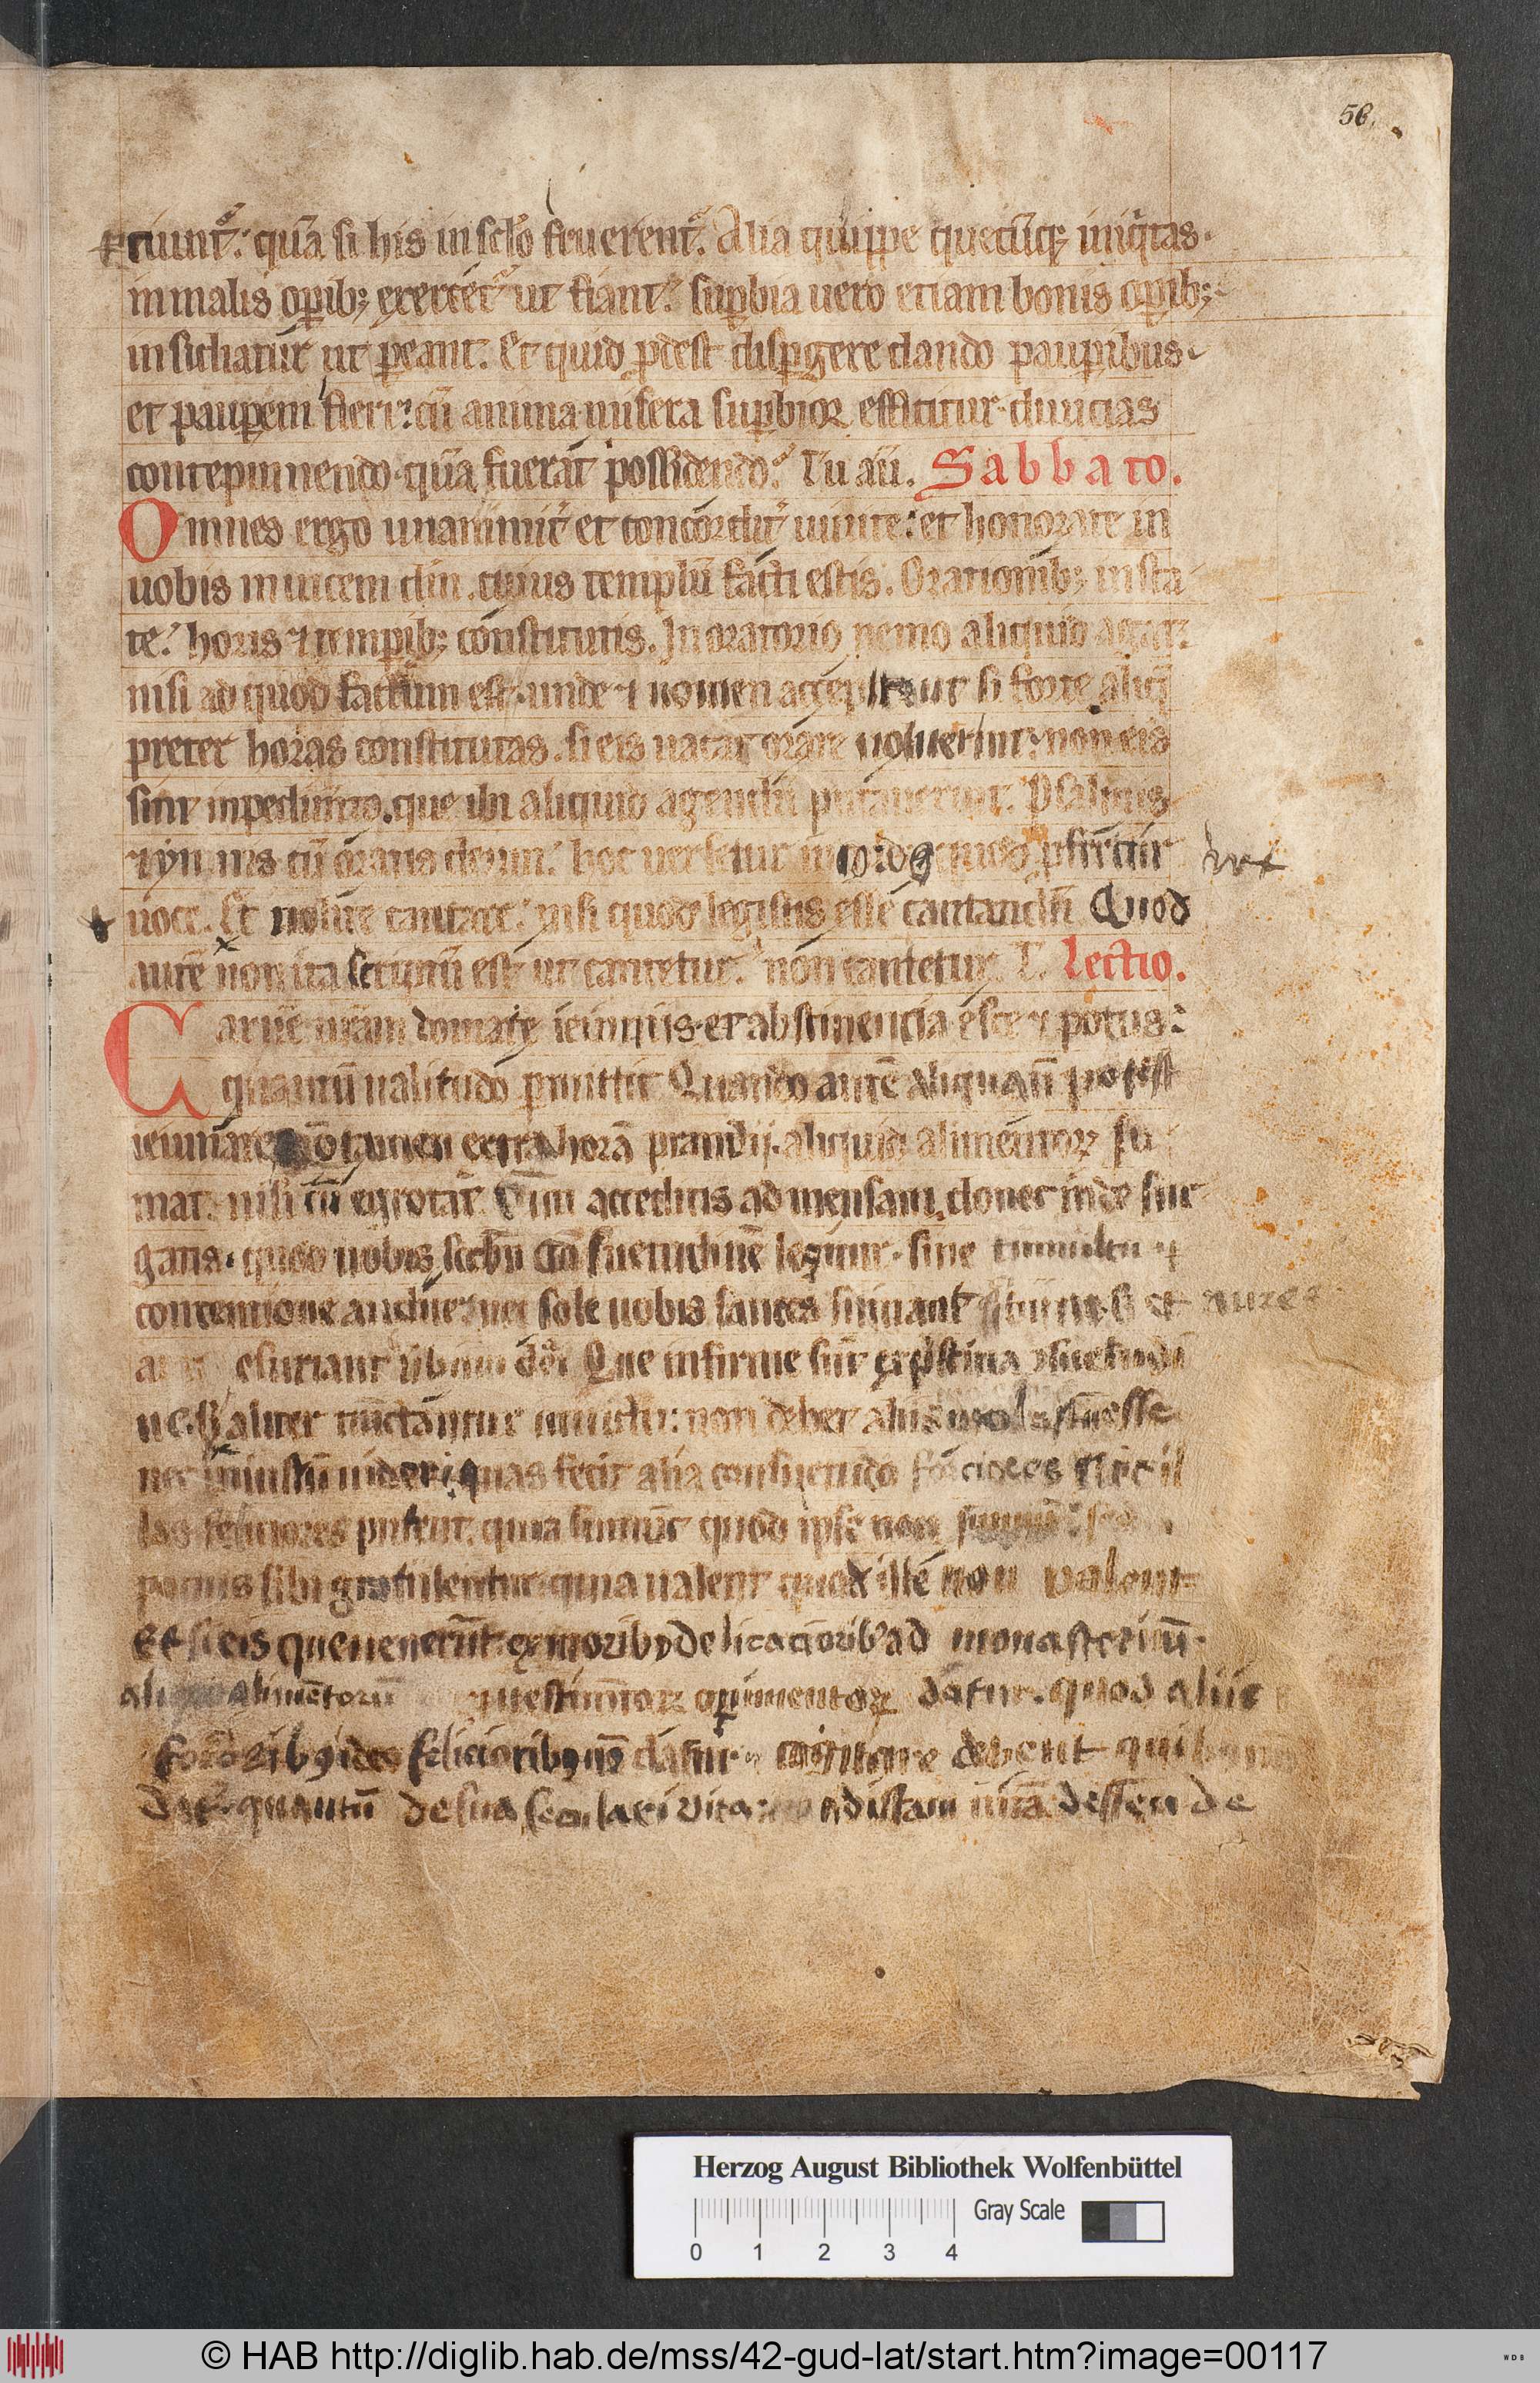 56.
ciunt᷑. quā si his in sclo fruerent᷑. Alia quippe quecūq; iniq̇tas.
in malis op̄ib; exercet᷑ ut fiant. sup̄bia uero etiam bonis op̄ib;
insidiatur ut p̄eant. Et quid p̄dest disp̄gere dando paup̄ibus
et paup̄em fieri? cū anima misera sup̄bior efficitur diuicias
contepmnendo quā fuerat possidendo. Tu aūt. Sabbato.
Omnes ergo unanimit̄ et concordit̄ uiuite. et honorate in
uobis inuicem dm̄. cuius templū facti estis. Orationib; insta
te. horis ⁊ temp̄ib; constitutis. In oratorio nemo aliquid agat.
nisi ad quod factum est. unde ⁊ nomen accepit ut si forte aliq̄
preter horas constitutas. si eis uacat orare uoluerint. non eis
sint inpedim̄to. que ibi aliquid agendū putauerunt. Psalmis
⁊ ymnis cū oratis deum. hoc uersetur in corde quod p̄fertur
uoce. Et nolite cantare. nisi quod legistis esse cantandū Quod
autē non ita scriptū est ut cantetur. non cantetur. T. Lectio.
Carnē uram domate ieiuniis. et abstinencia esce ⁊ potus.
quantū ualitudo p̄mittit Quando autē aliqua nō potest
ieiunare nō tamen extra horā prandii. aliquid alimentor̄ su
mat. nisi cū egrotat. Cum acceditis ad mensam. donec inde sur
gatis. quod uobis scd̄m cōsuetudinē legitur. sine tumultu ⁊
contentione audite. nec sole uobis fauces sumant cibum. s; et aures
esuriant ūbum dei Que infirme sūt ex p̄stina ɔsuetudi
ne. si aliter tractantur in uictu. non debet aliis molestū esse
nec iniustū uideri. quas fecit alia consuetudo forciores Nec il
las feliciores putent. quia sumūt quod ipse non sumūt. sed
pocius sibi gratulentur quia ualent quod ille non valent
Et si eis que uenerūt ex moribȝ delicacioribȝ ad monasteriū.
aliquid alimētorū uestimētor̄ op̄imentor̄ datur. quod aliis
forcioribȝ ideo felicioribȝ nō datur cogitare debent quibȝ nō
Dat᷑. quantū de sua seculari vita ad istam ūrā. dessende
Herzog August Bibliothek Wolfenbüttel
Gray Scale
0 1 2 3 4
© HAB http://diglib.hab.de/mss/42-gud-lat/start.htm?image=00117
WDB